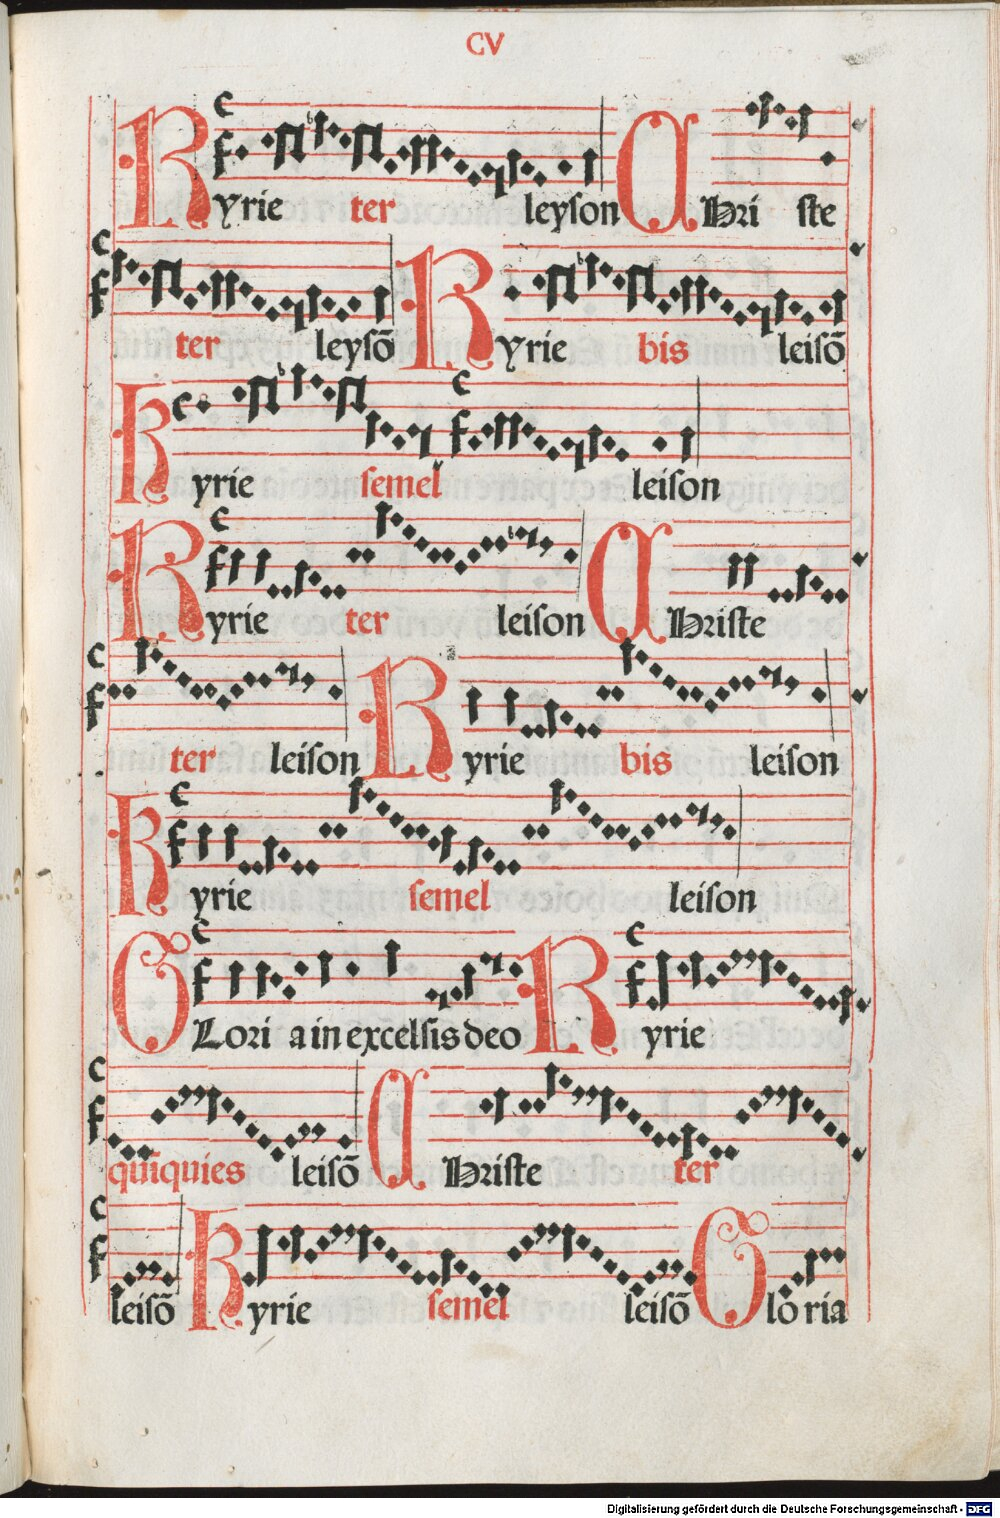 CV
Kyrie ter leyson Christe
ter leysō Kyrie bis leisō
Kyrie semel leison
Kyrie ter leison Christe
ter leison Kyrie bis leison
Kyrie semel leison
Glori a in excelsis deo Kyrie
quīquies leisō Christe ter
leisō Kyrie semel leisō Glo ria
Digitalisierung gefördert durch die Deutsche Forschungsgemeinschaft - DFG